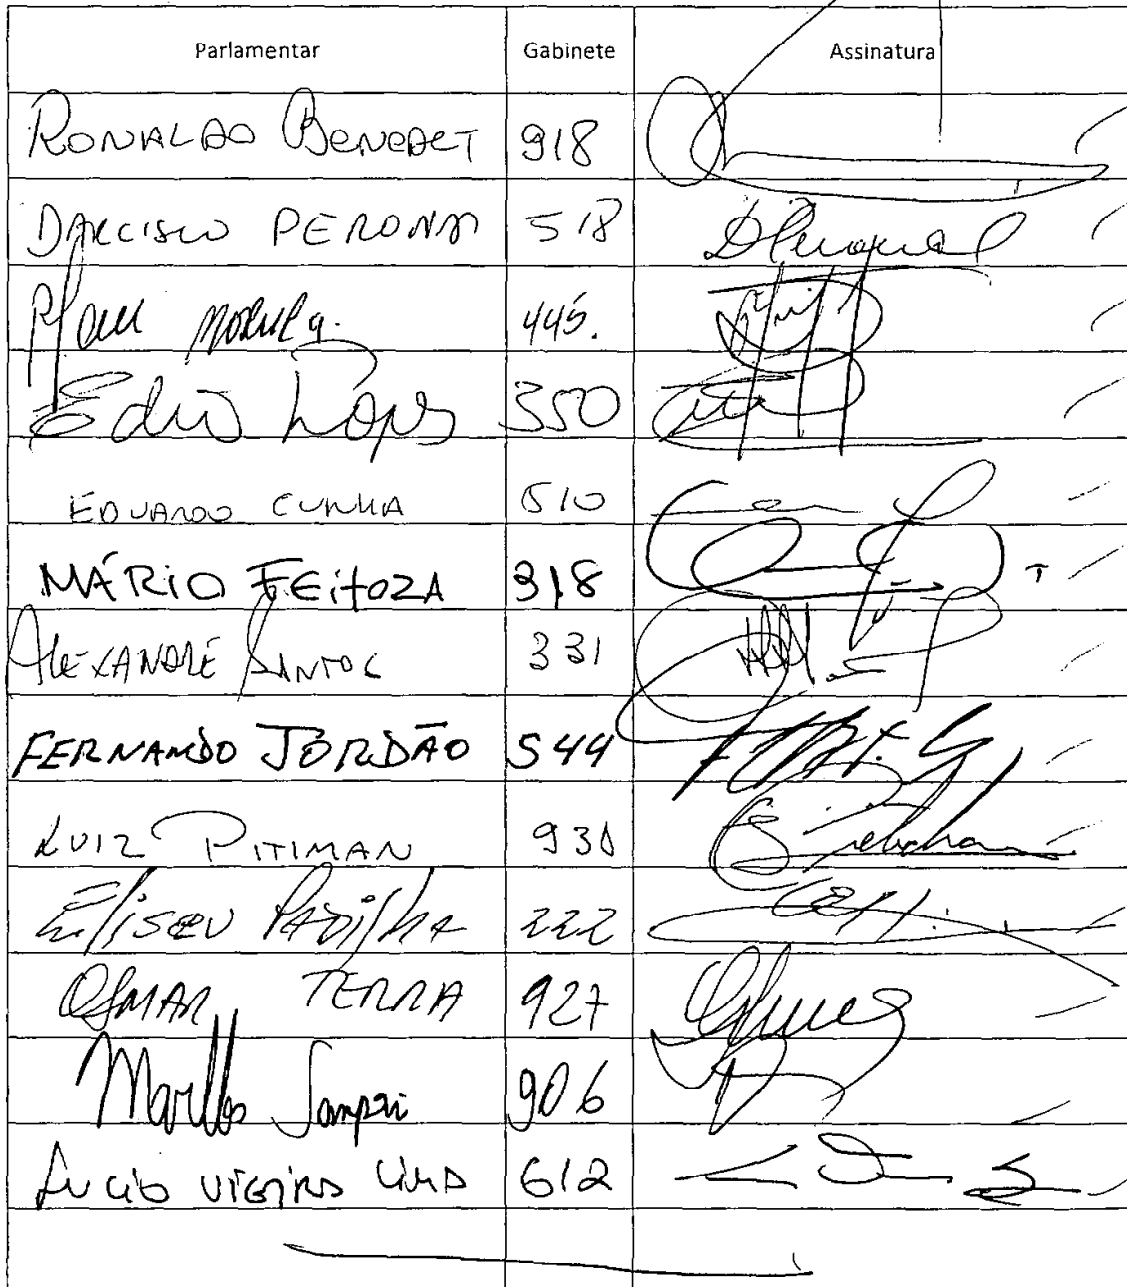 Parlamentar Gabinete Assinatura
RONALDO BENEDET 918
DARCISIO PERONDI 518
445.
Edio Lopes 350
EDUARDO CUNHA 510
MÁRIO FEITOZA 318
ALEXANDRE SANTOS 331
FERNANDO JORDÃO 544
LUIZ PITIMAN 930
Eliseu Padilha 222
OSMAR TERRA 927
Marllos Sampaio 906
Lucio Vieira Lima 612